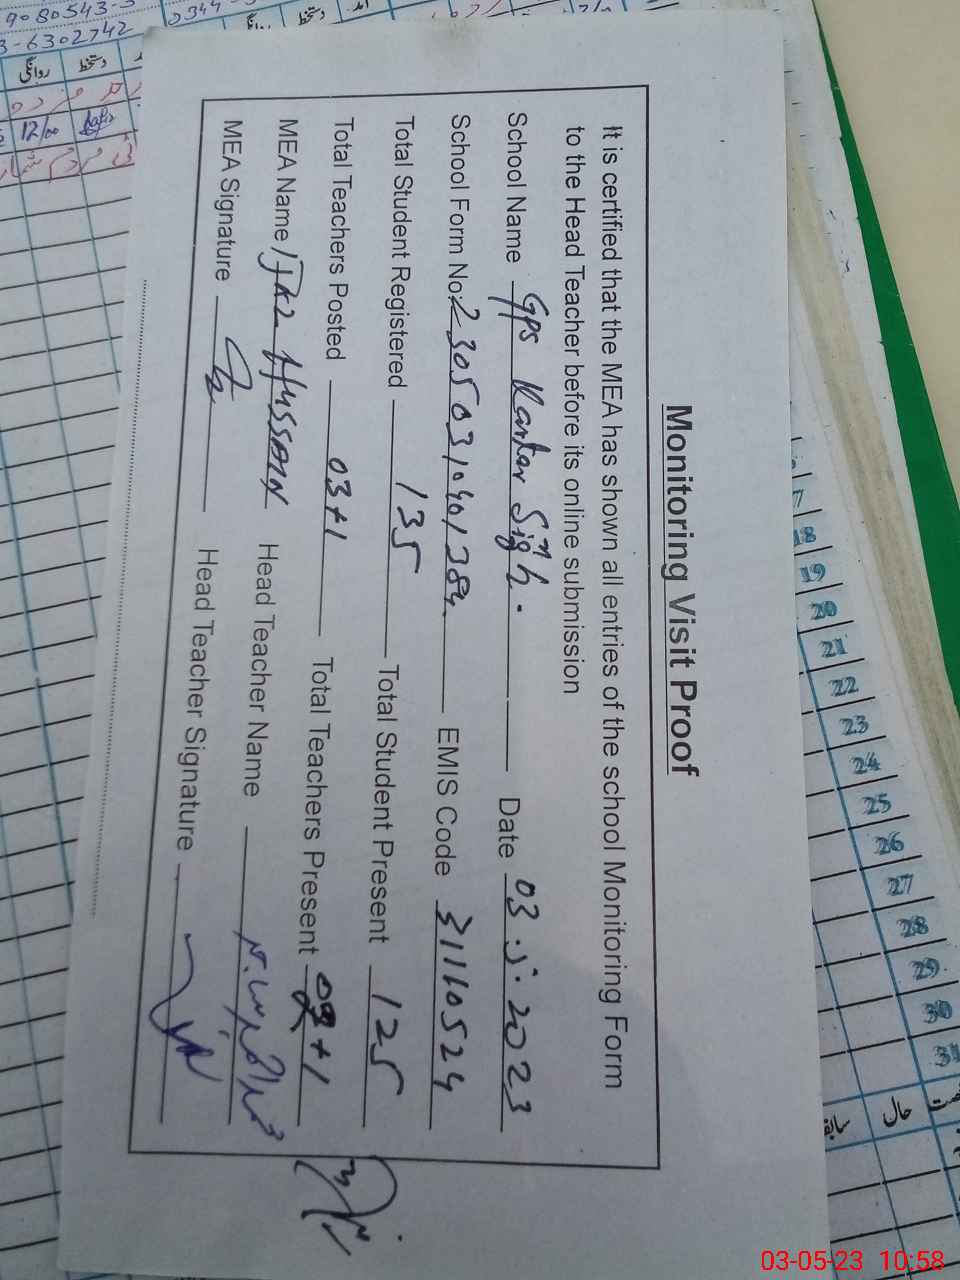 Monitoring Visit Proof
It is certified that the MEA has shown all entries of the school Monitoring Form
to the Head Teacher before its online submission
School Name Gps Kartar Sigh. Date 03.5.2023
School Form No. 2305031040138 EMIS Code 31110524
Total Student Registered 135 Total Student Present 125
Total Teachers Posted 03+1 Total Teachers Present +1
MEA Name Ijaz Hussain Head Teacher Name
MEA Signature Head Teacher Signature
9080543-3
3-6302742
2344
روانگی
دستخط
12/00
7
18
19
20
21
22
23
24
25
26
27
28
29
30
31
حال
سابقہ
03-05-23 10:58